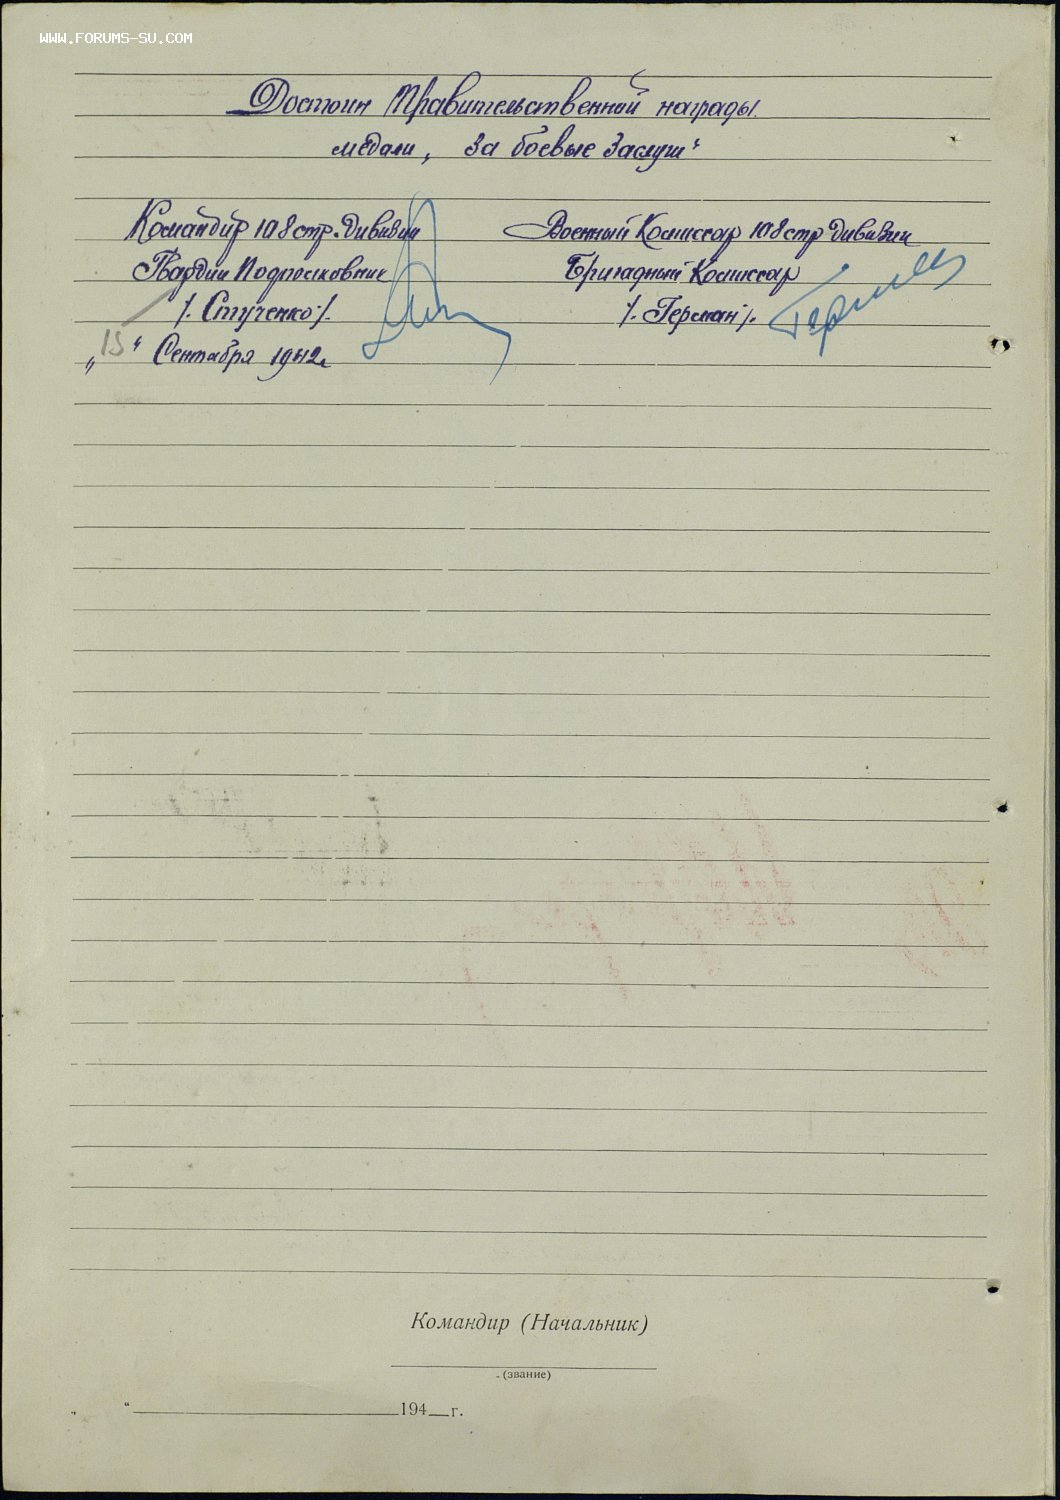 WWW.FORUMS-SU.COM
Достоин Правительственной награды
медали „За боевые Заслуги“
Командир 108 стр. Дивизии
Гвардии Подполковник
/. Стученко /.
„15“ Сентября 1942 г
Военный Комиссар 108 стр Дивизии
Бригадный Комиссар
/. Герман /.
Командир (Начальник)
(звание)
„ “ 194 г.